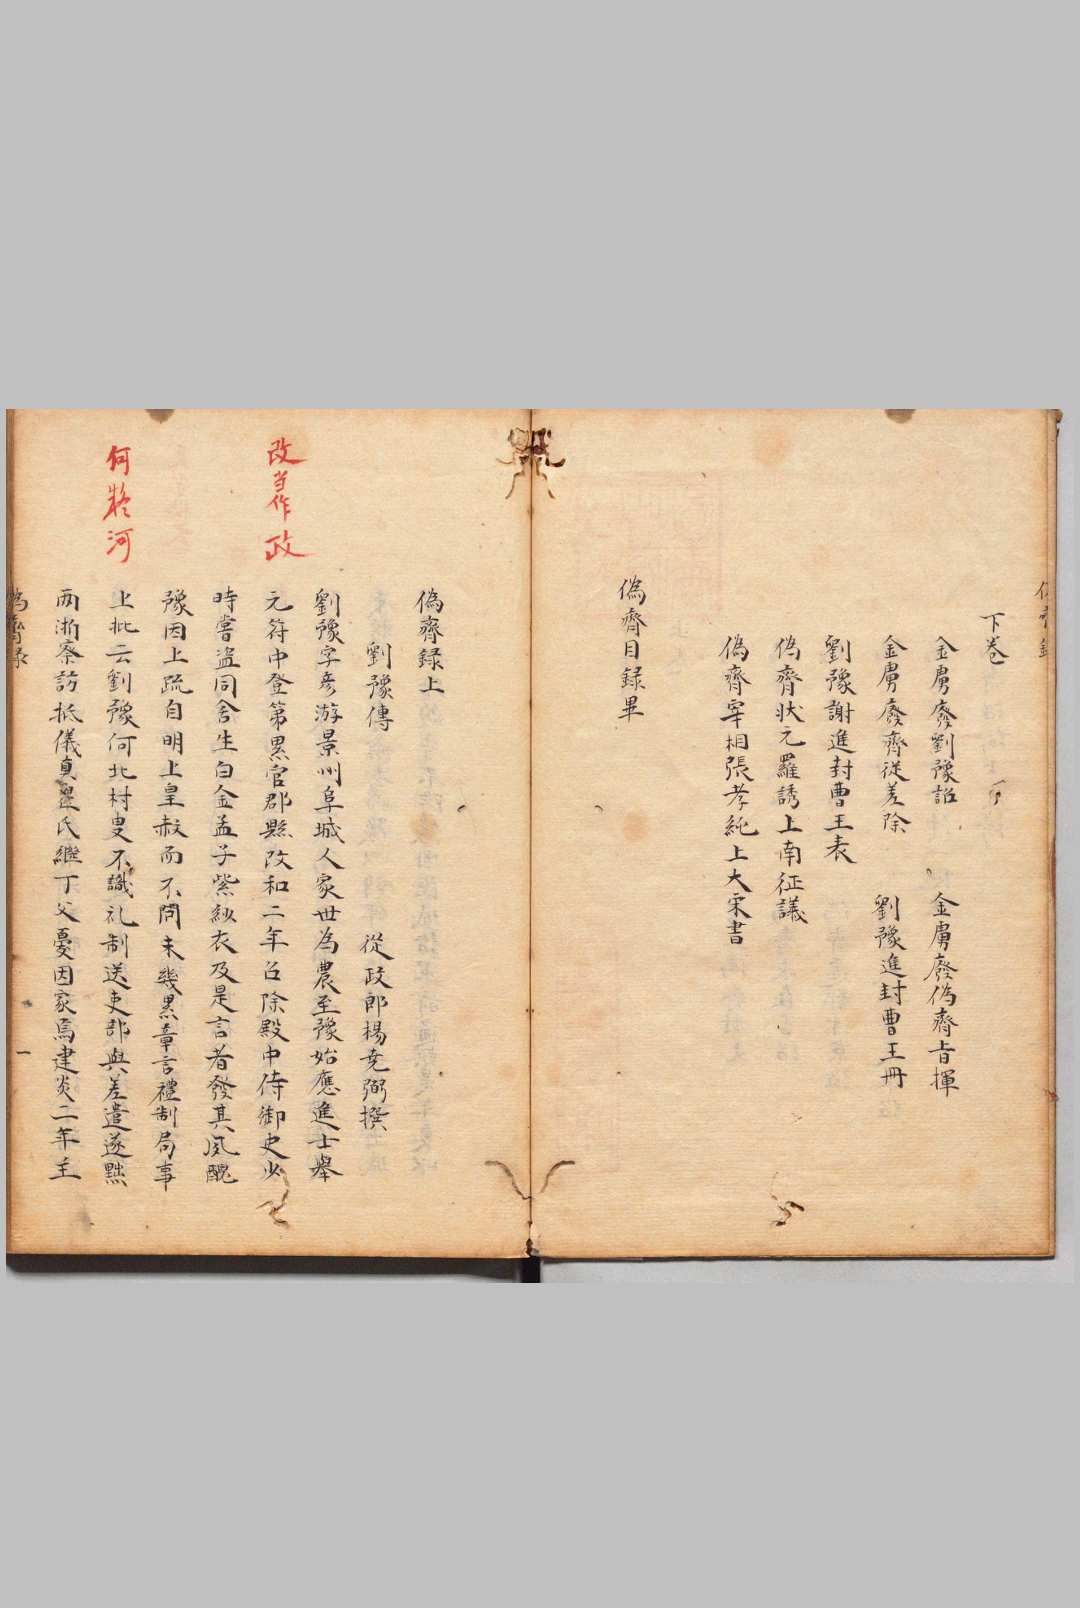 下卷
金虜廢劉豫詔　金虜廢偽齊旨揮
金虜廢齊從差除　劉豫進封曹王冊
劉豫謝進封曹王表
偽齊狀元羅誘上南征議
偽齊宰相張孝純上大宋書
偽齊目録畢
偽齊録上
劉豫傳　從政郎楊堯弼撰
劉豫字彦游景州阜城人家世為農至豫始應進士舉
元符中登第累官郡縣改和二年召除殿中侍御史少
時嘗盜同舍生白金盂子紫紗衣及是言者發其夙醜
豫因上疏自明上皇赦而不問未幾累章言禮制局事
上批云劉豫何北村叟不識礼制送吏部與差遣遂黜
兩浙察訪抵儀真是氏繼丁父憂因家焉建炎二年主
改当作政
何疑河
偽齊録
一